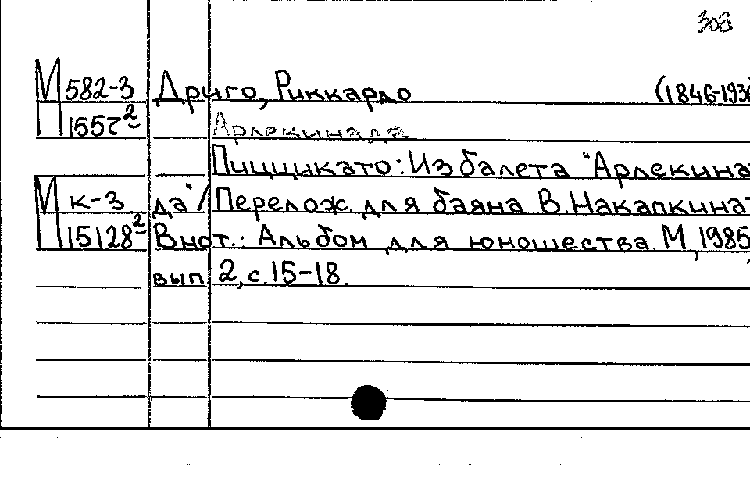 308
М 582-3 Дриго, Риккардо (1846-1930
П 1557² Арлекинада
Пиццикато: Из балета "Арлекина-
М к-3 да" / Перелож. для баяна В. Накапкина-
П 15128² В нот.: Альбом для юношества М., 1985,
вып 2, с. 15-18.